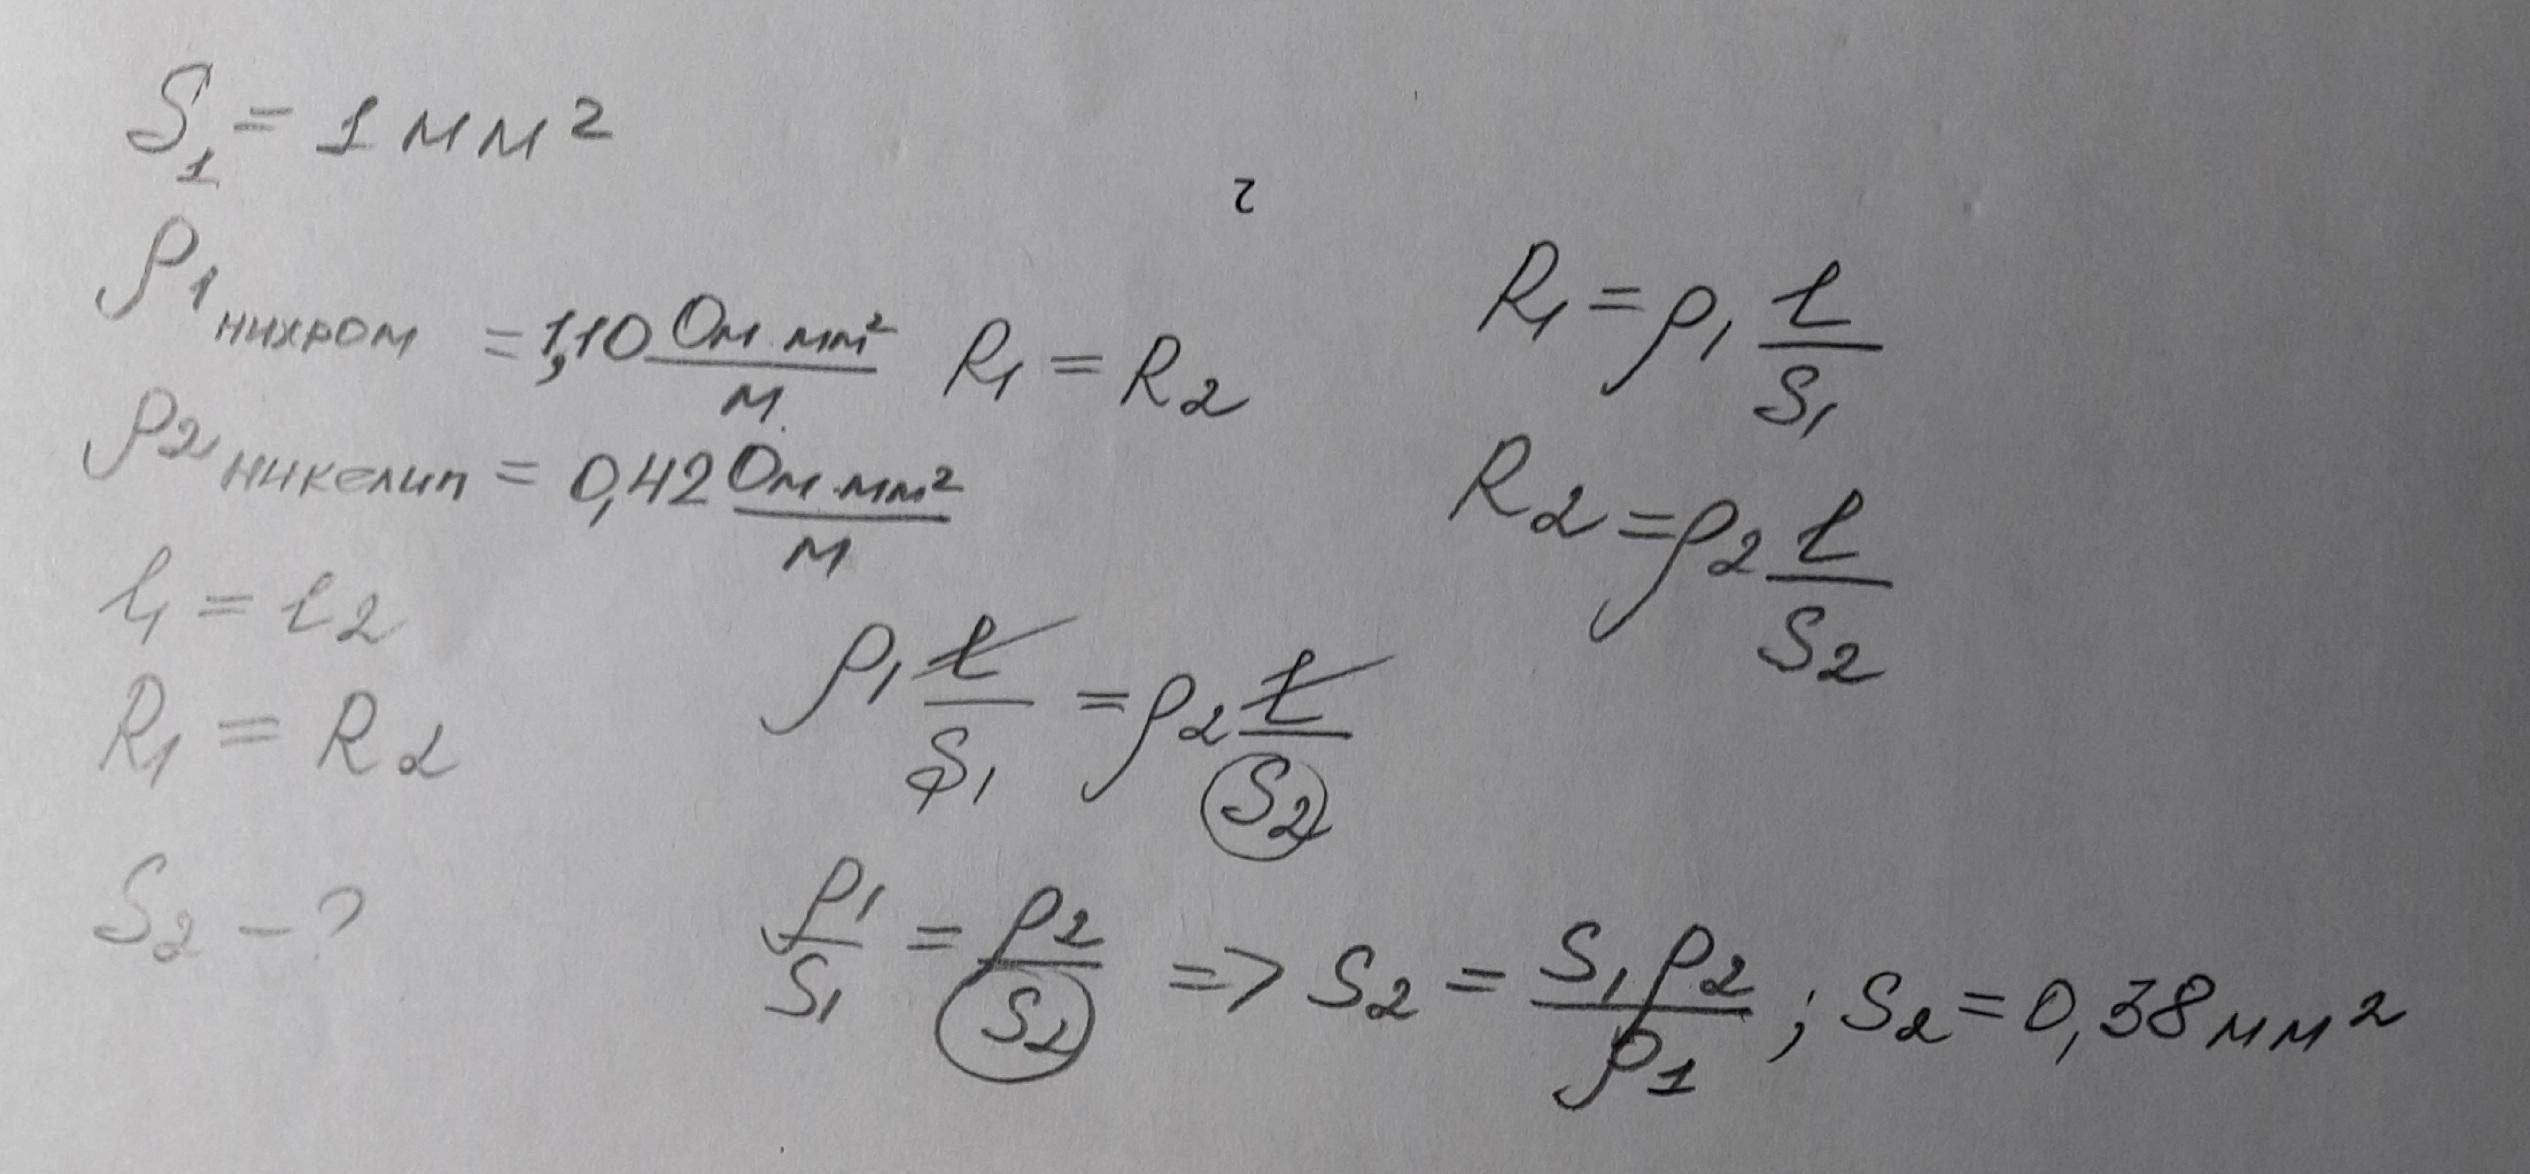 S₁ = 1 мм²
ρ₁ нихром = 1,10 Ом·мм²/м
ρ₂ никелин = 0,42 Ом·мм²/м
l₁ = l₂
R₁ = R₂
S₂ – ?
2
R₁ = R₂
R₁ = ρ₁ l/S₁
R₂ = ρ₂ l/S₂
ρ₁ l/S₁ = ρ₂ l/S₂
ρ₁/S₁ = ρ₂/S₂ => S₂ = S₁ρ₂/ρ₁ ; S₂ = 0,38 мм²